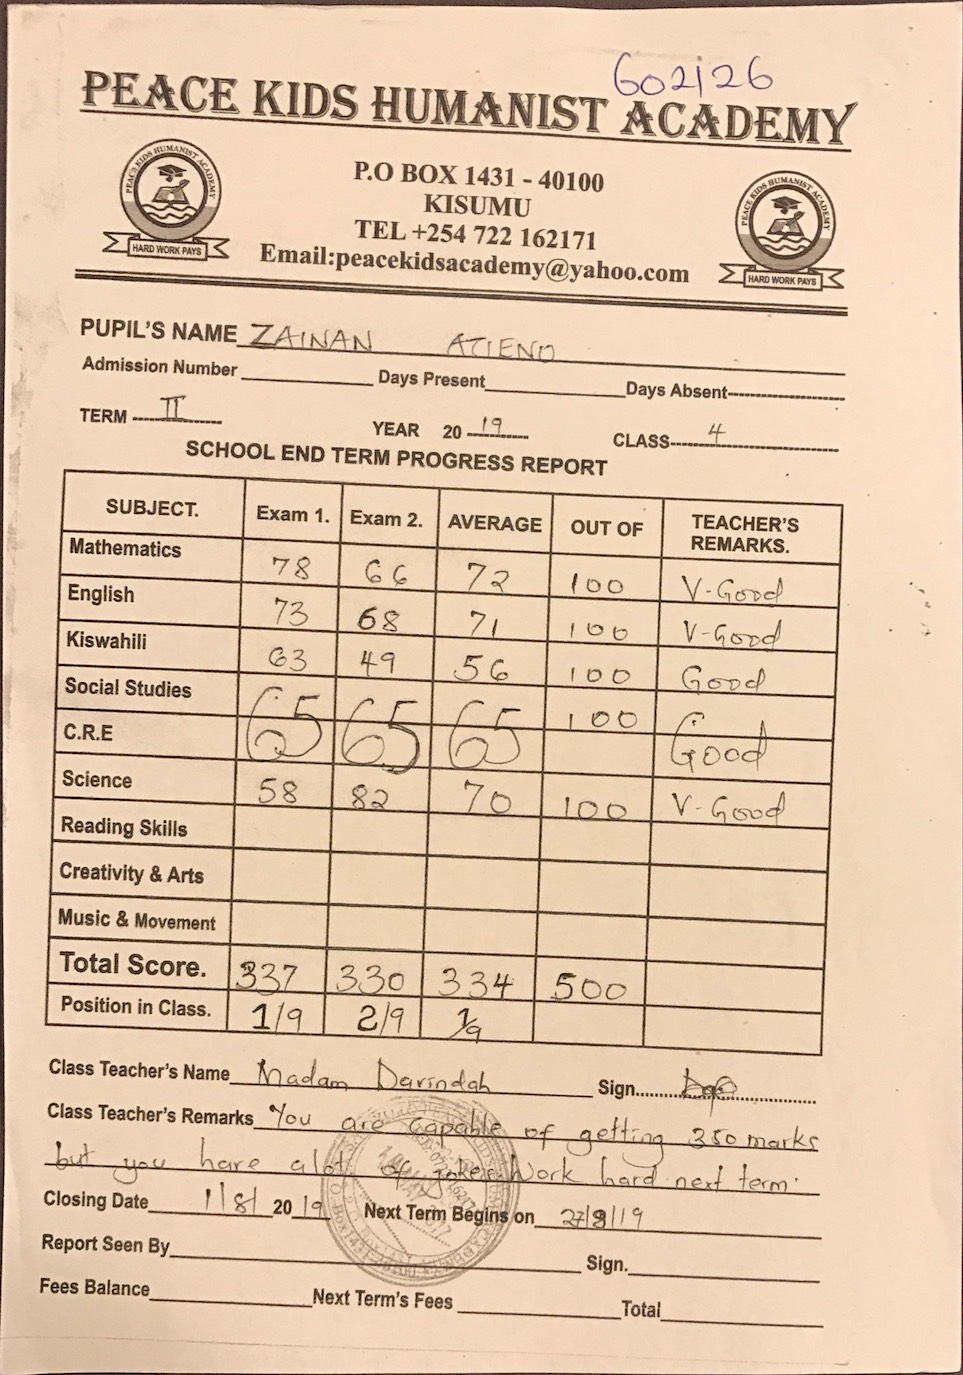 602126
PEACE KIDS HUMANIST ACADEMY
PEACE KIDS HUMANIST ACADEMY
HARD WORK PAYS
P.O BOX 1431 - 40100
KISUMU
TEL +254 722 162171
Email:peacekidsacademy@yahoo.com
PEACE KIDS HUMANIST ACADEMY
HARD WORK PAYS
PUPIL'S NAME ZAINAN ATIENO
Admission Number Days Present Days Absent
TERM II YEAR 2019 CLASS 4
SCHOOL END TERM PROGRESS REPORT
SUBJECT. Exam 1. Exam 2. AVERAGE OUT OF TEACHER'S REMARKS.
Mathematics 78 66 72 100 V-Good
English 73 68 71 100 V-Good
Kiswahili 63 49 56 100 Good
Social Studies 65 65 65 100 Good
C.R.E
Science 58 82 70 100 V-Good
Reading Skills
Creativity & Arts
Music & Movement
Total Score. 337 330 334 500
Position in Class. 1/9 2/9 1/9
Class Teacher's Name Madam Darindah Sign
Class Teacher's Remarks You are capable of getting 350 marks
but you have alot of jokes. Work hard next term.
Closing Date 1/8/ 2019 Next Term Begins on 27/8/19
Report Seen By Sign.
Fees Balance Next Term's Fees Total